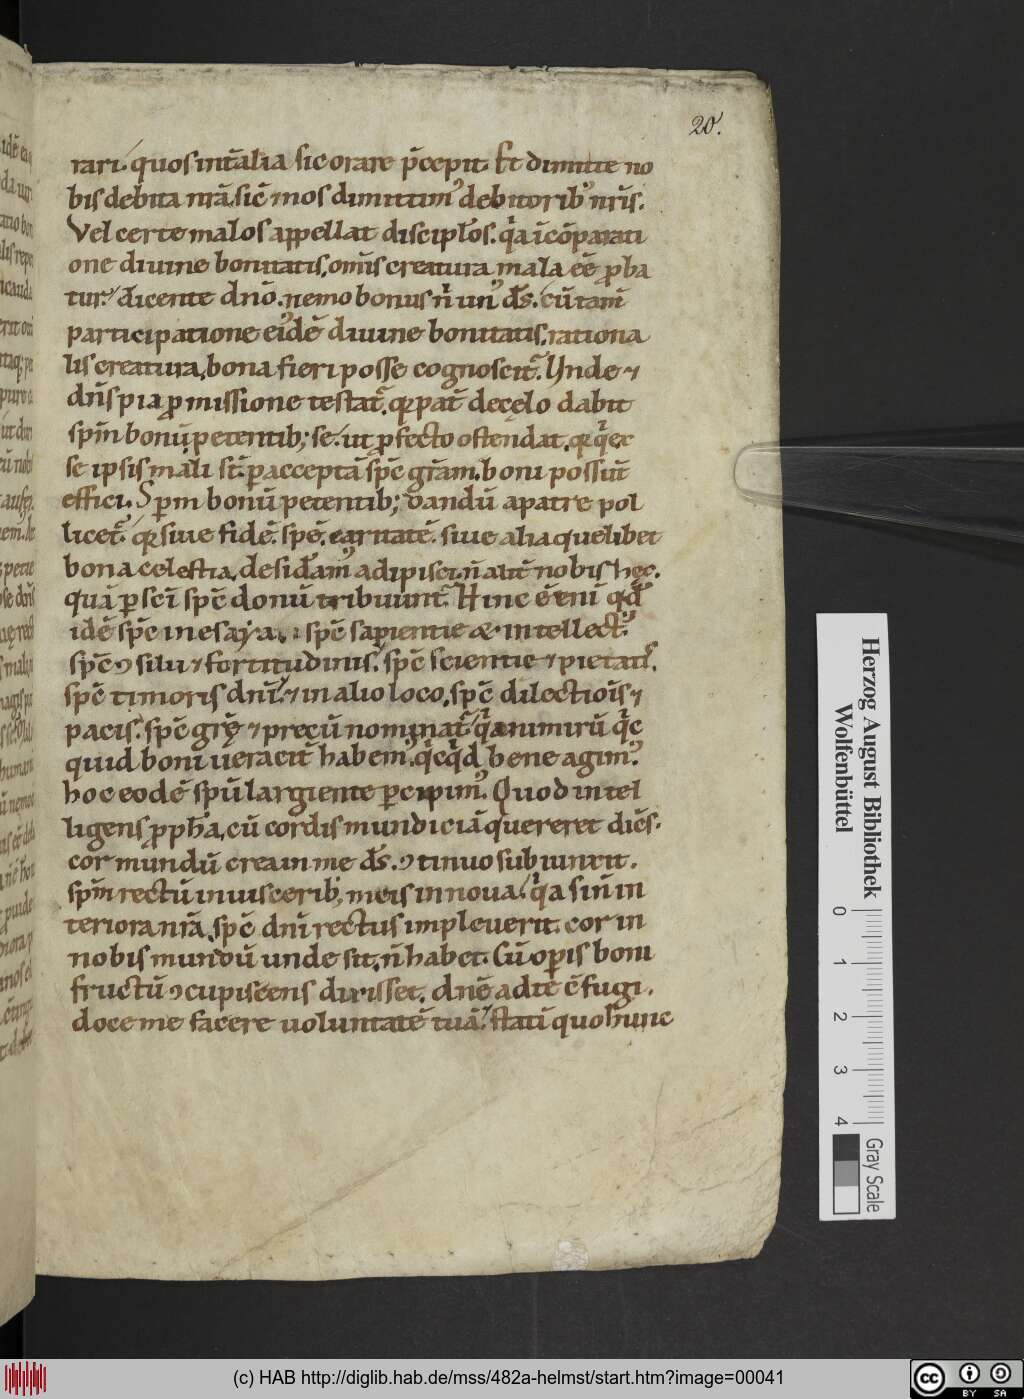 20.
rari. quos int̄ alia sic orare p̄cepit. Et dimitte no
bis debita nr̄a. sic̄ ⁊ nos dimittim᷒ debitorib᷒ nr̄is.
Vel certe malos appellat discipl̄os. qͣa ī cōparati
one diuine bonitatis, om̄is creatura mala eē ꝓba
tur. dicente dn̄o. nemo bonus n̄ un᷒ d̄s. cū tam̄
participatione ei᷒dē diuine bonitatis, rationa
lis creatura, bona fieri posse cognoscit᷑. Vnde ⁊
dn̄s pia ꝓmissione testat᷑. qꝛ pat̄ de cęlo dabit
sp̄m bonū petentib; se. ut ꝓfecto ostendat. qꝛ qͥ ex
se ipsis mali st̄. ꝑ acceptā sp̄c gr̄am. boni possūt
effici. Sp̄m bonū petentib; dandū a patre pol
licet᷑. qꝛ siue fidē. spē. caritatē. siue alia quelibet
bona celestia, desid̄am᷒ adipisci. n̄ alit̄ nobis hęc.
quā ꝑ sc̄ī sp̄c donū tribuunt᷑. Hinc ē eni qd̄
idē sp̄c in esaya. sp̄c sapientie & intellect᷒.
sp̄c ꝯsilii ⁊ fortitudinis. sp̄c scientie ⁊ pietatis.
sp̄c timoris dn̄i. ⁊ in alio loco, sp̄c dilectiōis ⁊
pacis. sp̄c gr̄ę ⁊ precū nominat᷑. qͣa nimirū qͥc
quid boni ueracit̄ habem᷒. qͥcqͥd bene agim᷒.
hoc eodē sp̄u largiente ꝑcipim᷒. Quod intel
ligens ꝓph̄a, cū cordis mundiciā quereret dic̄s.
cor mundū crea in me d̄s. ꝯtinuo subiunxit.
sp̄m rectū in uiscerib᷒ meis innoua. qͣa si n̄ in
teriora nr̄a, sp̄c dn̄i rectus impleuerit. cor in
nobis mundū unde sit, n̄ habet. Cū op̄is boni
fructū ꝯcupiscens dixisset. dn̄e ad te c̄fugi.
doce me facere uoluntatē tuā. statī quo hunc
Herzog August Bibliothek
Wolfenbüttel
0 1 2 3 4
Gray Scale
(c) HAB http://diglib.hab.de/mss/482a-helmst/start.htm?image=00041
cc BY SA